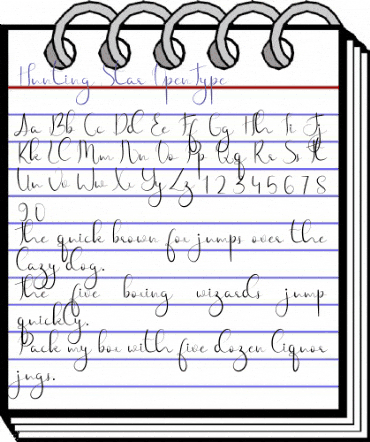 Hunting Star OpenType
Aa Bb Cc Dd Ee Ff Gg Hh Ii Jj
Kk Ll Mm Nn Oo Pp Qq Rr Ss Tt
Uu Vv Ww Xx Yy Zz 1 2 3 4 5 6 7 8
9 0
The quick brown fox jumps over the
lazy dog.
The five boxing wizards jump
quickly.
Pack my box with five dozen liquor
jugs.